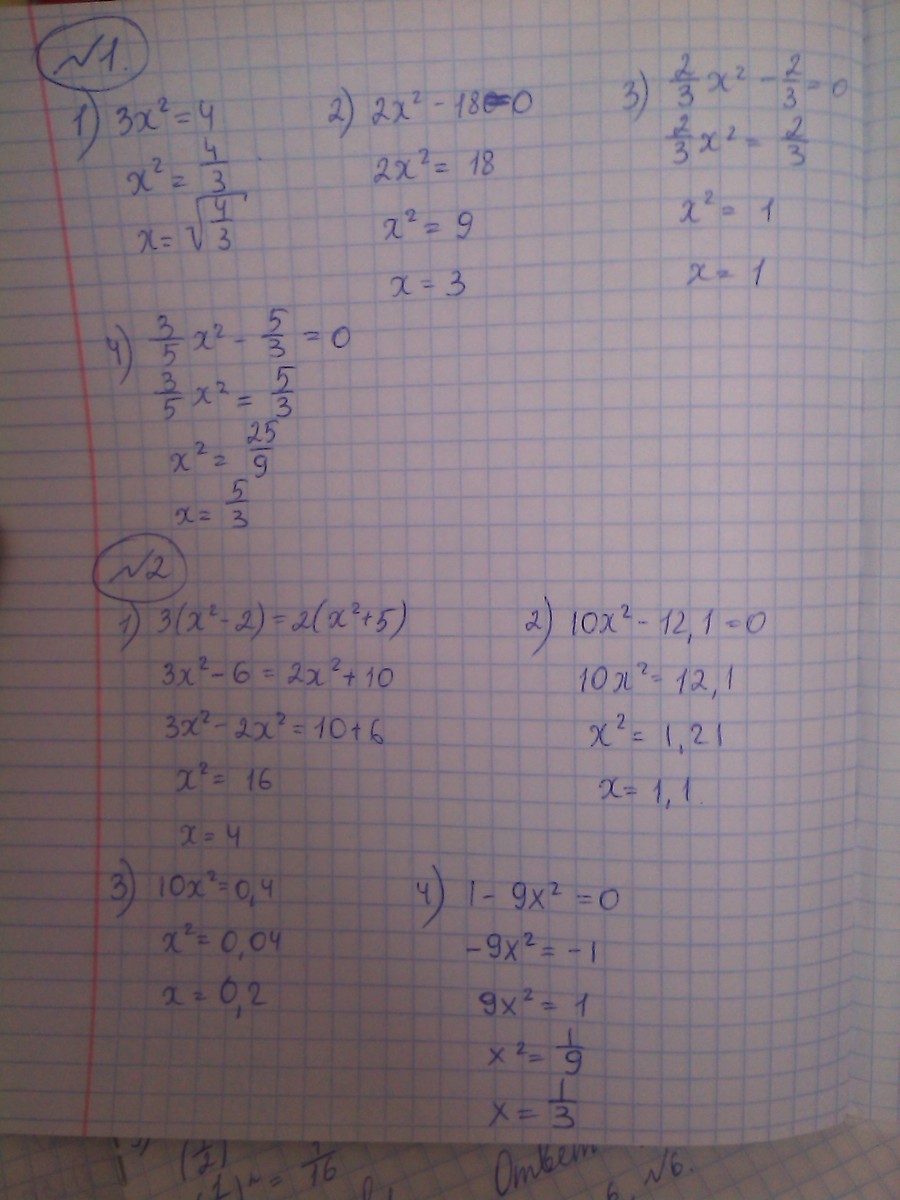 №1.
1) 3x² = 4
x² = 4/3
x = √(4/3)
2) 2x² - 18 = 0
2x² = 18
x² = 9
x = 3
3) 2/3 x² - 2/3 = 0
2/3 x² = 2/3
x² = 1
x = 1
4) 3/5 x² - 5/3 = 0
3/5 x² = 5/3
x² = 25/9
x = 5/3
№2
1) 3(x² - 2) = 2(x² + 5)
3x² - 6 = 2x² + 10
3x² - 2x² = 10 + 6
x² = 16
x = 4
2) 10x² - 12,1 = 0
10x² = 12,1
x² = 1,21
x = 1,1.
3) 10x² = 0,4
x² = 0,04
x = 0,2
4) 1 - 9x² = 0
-9x² = -1
9x² = 1
x² = 1/9
x = 1/3
Ответ
№6.